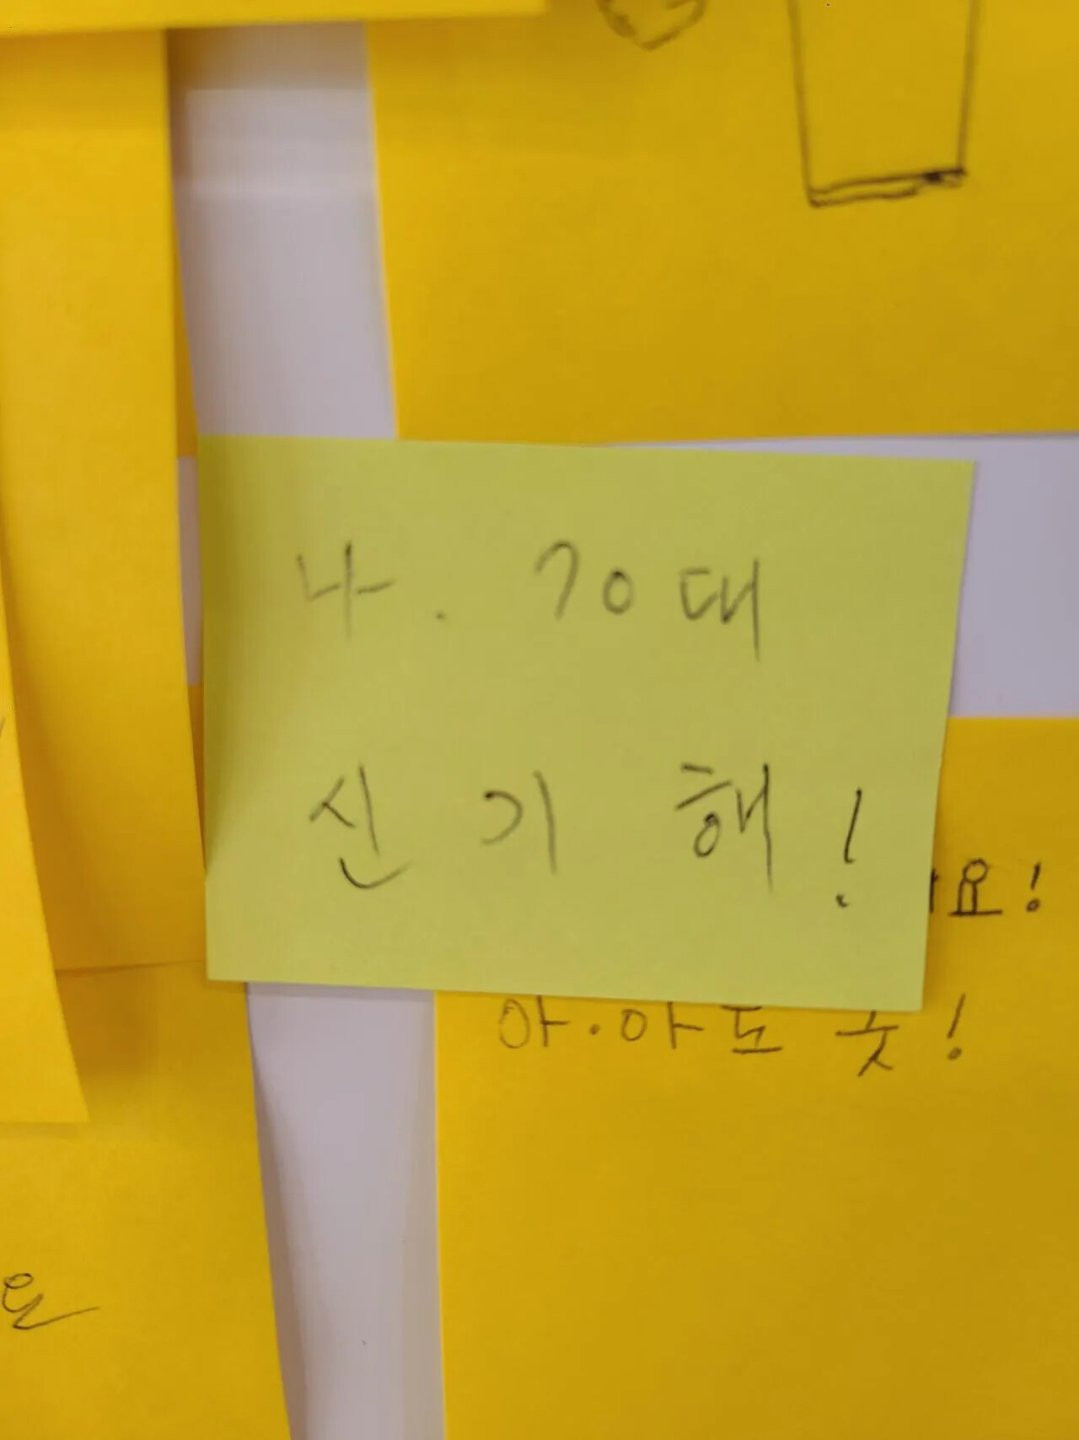 나. 70대
신 기 해!
요!
아.아도 굿!